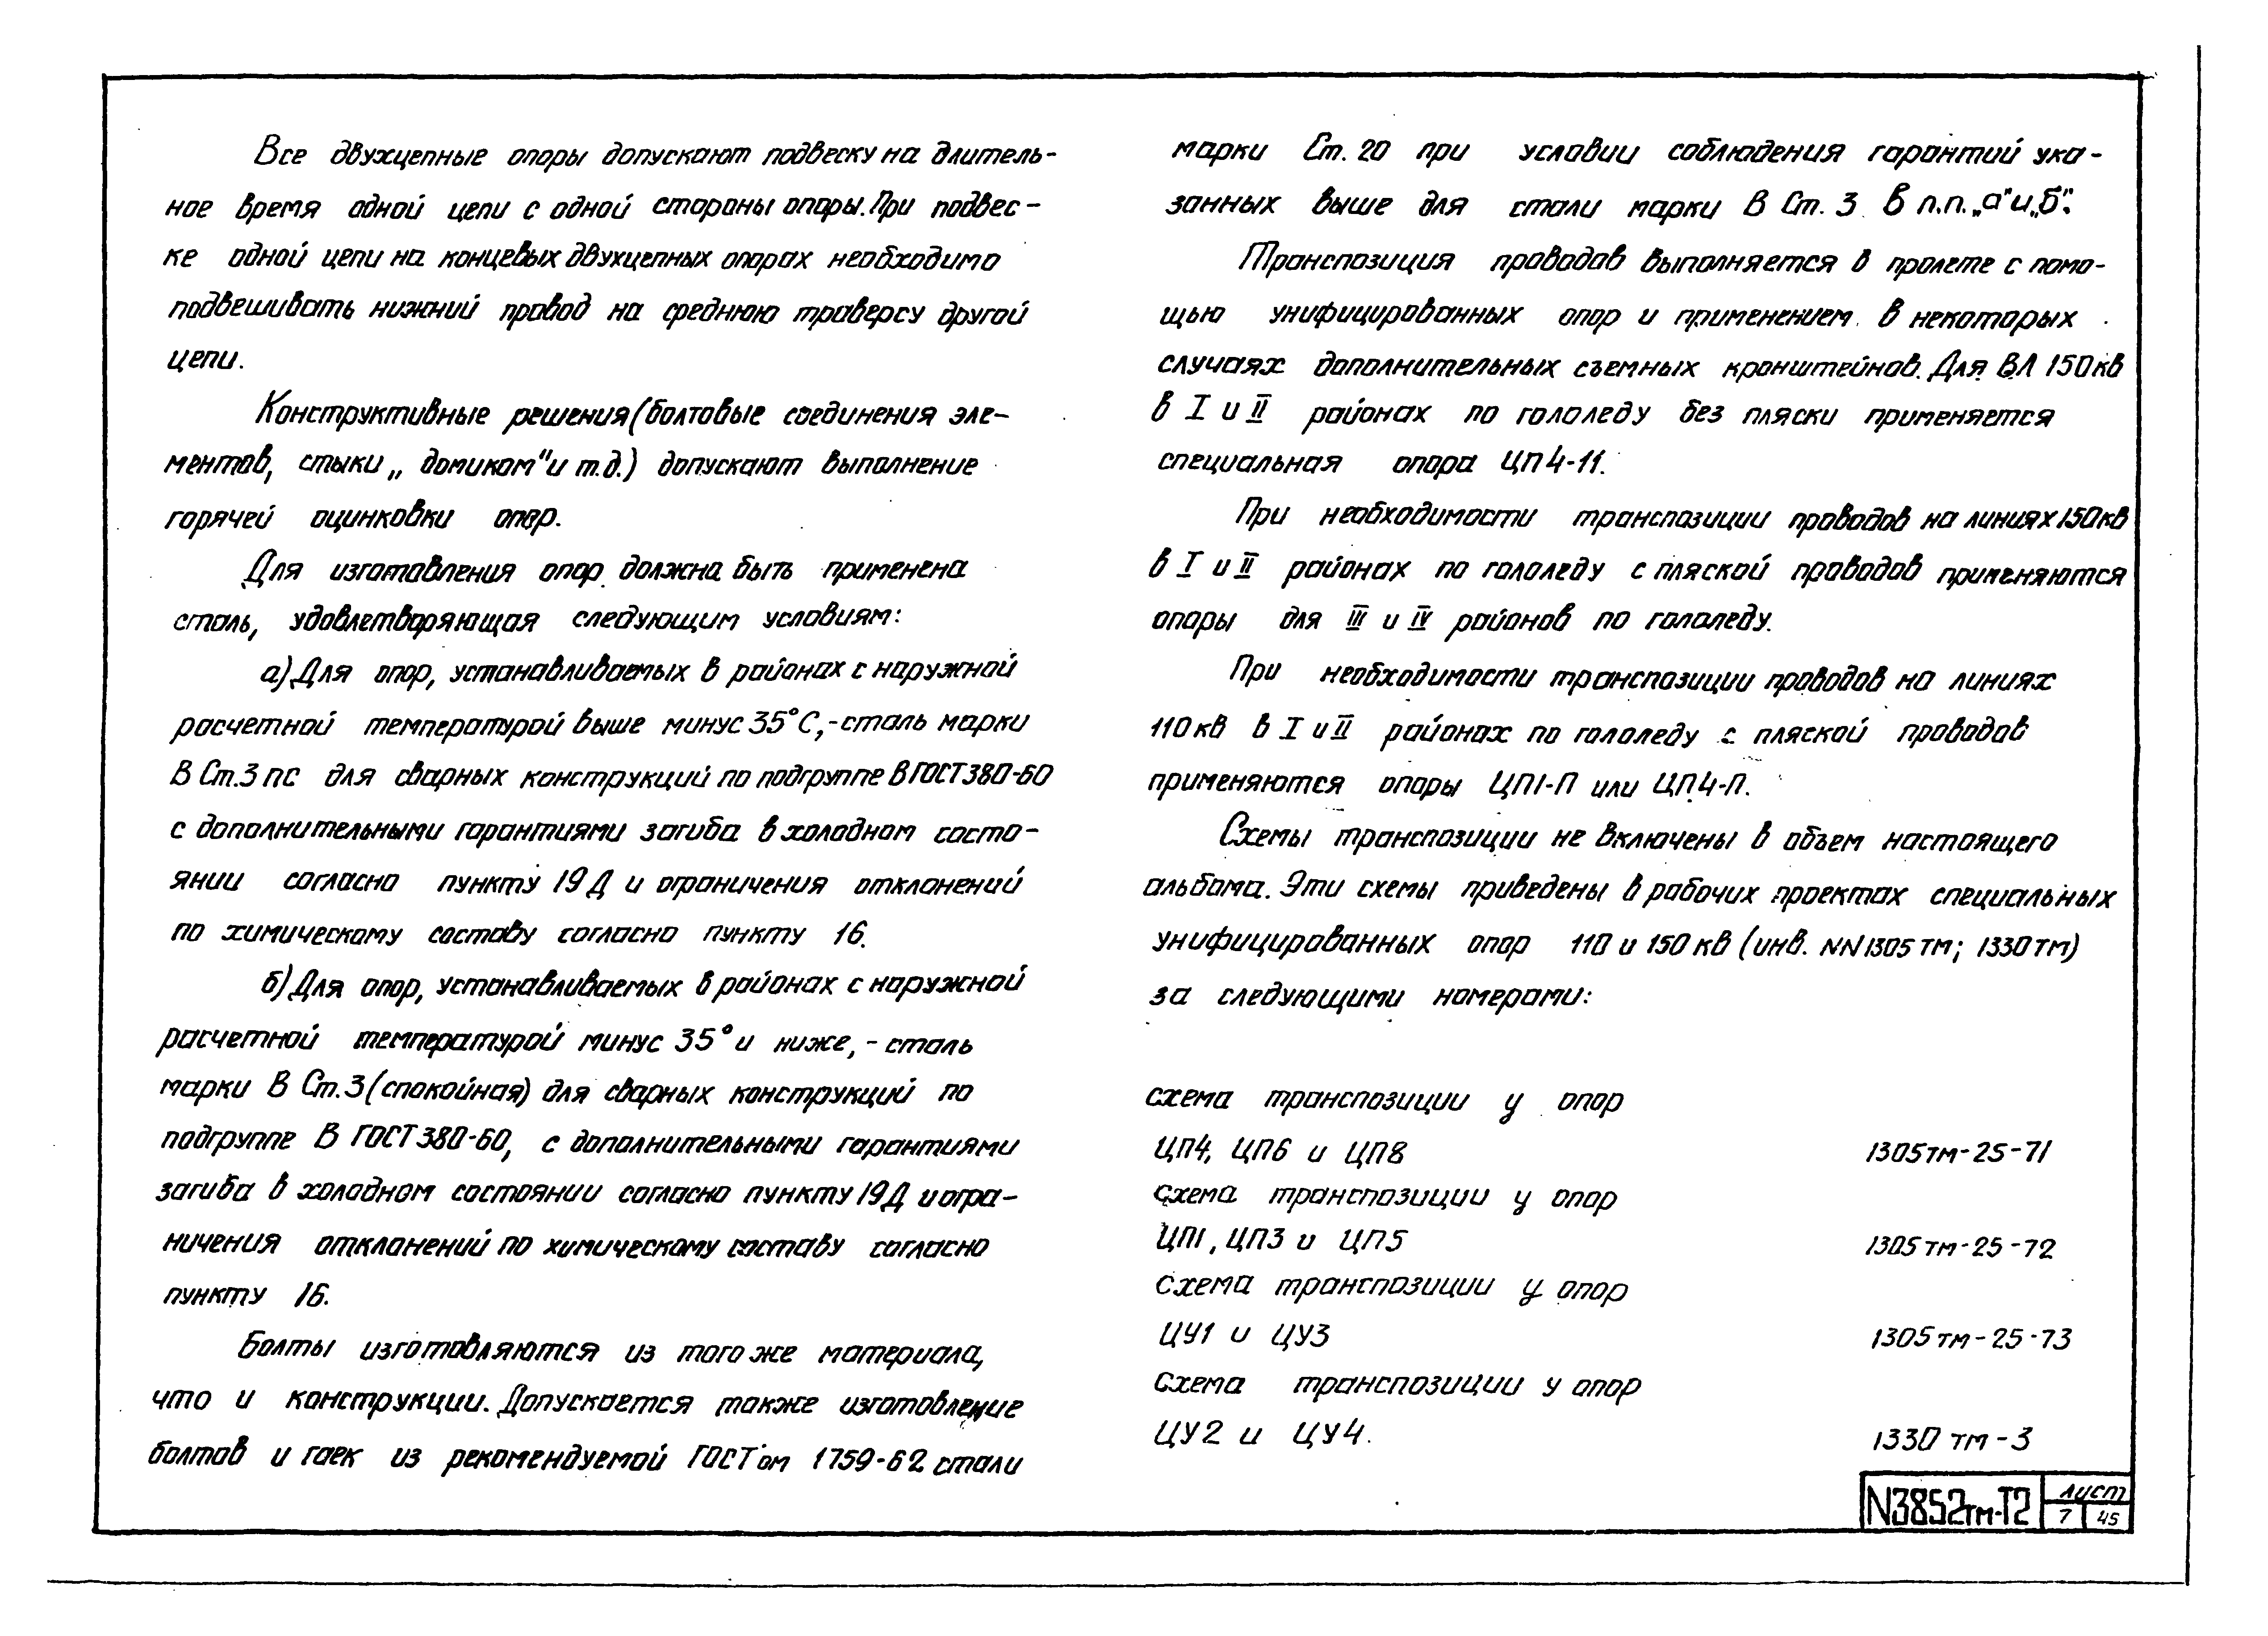 Все двухцепные опоры допускают подвеску на длитель-
ное время одной цепи с одной стороны опоры. При подвес-
ке одной цепи на концевых двухцепных опорах необходимо
подвешивать нижний провод на среднюю траверсу другой
цепи.
Конструктивные решения (болтовые соединения эле-
ментов, стыки „домиком" и т.д.) допускают выполнение
горячей оцинковки опор.
Для изготовления опор должна быть применена
сталь, удовлетворяющая следующим условиям:
а) Для опор, устанавливаемых в районах с наружной
расчетной температурой выше минус 35°С, - сталь марки
В Ст.3 пс для сварных конструкций по подгруппе В ГОСТ 380-60
с дополнительными гарантиями загиба в холодном состо-
янии согласно пункту 19 Д и ограничения отклонений
по химическому составу согласно пункту 16.
б) Для опор, устанавливаемых в районах с наружной
расчетной температурой минус 35° и ниже, - сталь
марки В Ст.3 (спокойная) для сварных конструкций по
подгруппе В ГОСТ 380-60, с дополнительными гарантиями
загиба в холодном состоянии согласно пункту 19 Д и огра-
ничения отклонений по химическому составу согласно
пункту 16.
Болты изготовляются из того же материала,
что и конструкции. Допускается также изготовление
болтов и гаек из рекомендуемой ГОСТ'ом 1759-62 стали
марки Ст. 20 при условии соблюдения гарантий ука-
занных выше для стали марки В Ст. 3 в п.п. „а" и „б".
Транспозиция проводов выполняется в пролете с помо-
щью унифицированных опор и применением в некоторых
случаях дополнительных съемных кронштейнов. Для ВЛ 150 кв
в I и II районах по гололеду без пляски применяется
специальная опора ЦП4-11.
При необходимости транспозиции проводов на линиях 150 кв
в I и II районах по гололеду с пляской проводов применяются
опоры для III и IV районов по гололеду.
При необходимости транспозиции проводов на линиях
110 кв в I и II районах по гололеду с пляской проводов
применяются опоры ЦП1-П или ЦП4-П.
Схемы транспозиции не включены в объем настоящего
альбома. Эти схемы приведены в рабочих проектах специальных
унифицированных опор 110 и 150 кв (инв. NN 1305 тм; 1330 тм)
за следующими номерами:
схема транспозиции у опор
ЦП4, ЦП6 и ЦП8 1305 тм-25-71
схема транспозиции у опор
ЦП1, ЦП3 и ЦП5 1305 тм-25-72
схема транспозиции у опор
ЦУ1 и ЦУ3 1305 тм-25-73
схема транспозиции у опор
ЦУ2 и ЦУ4. 1330 тм-3
N3852тм-Т2 лист
7 45